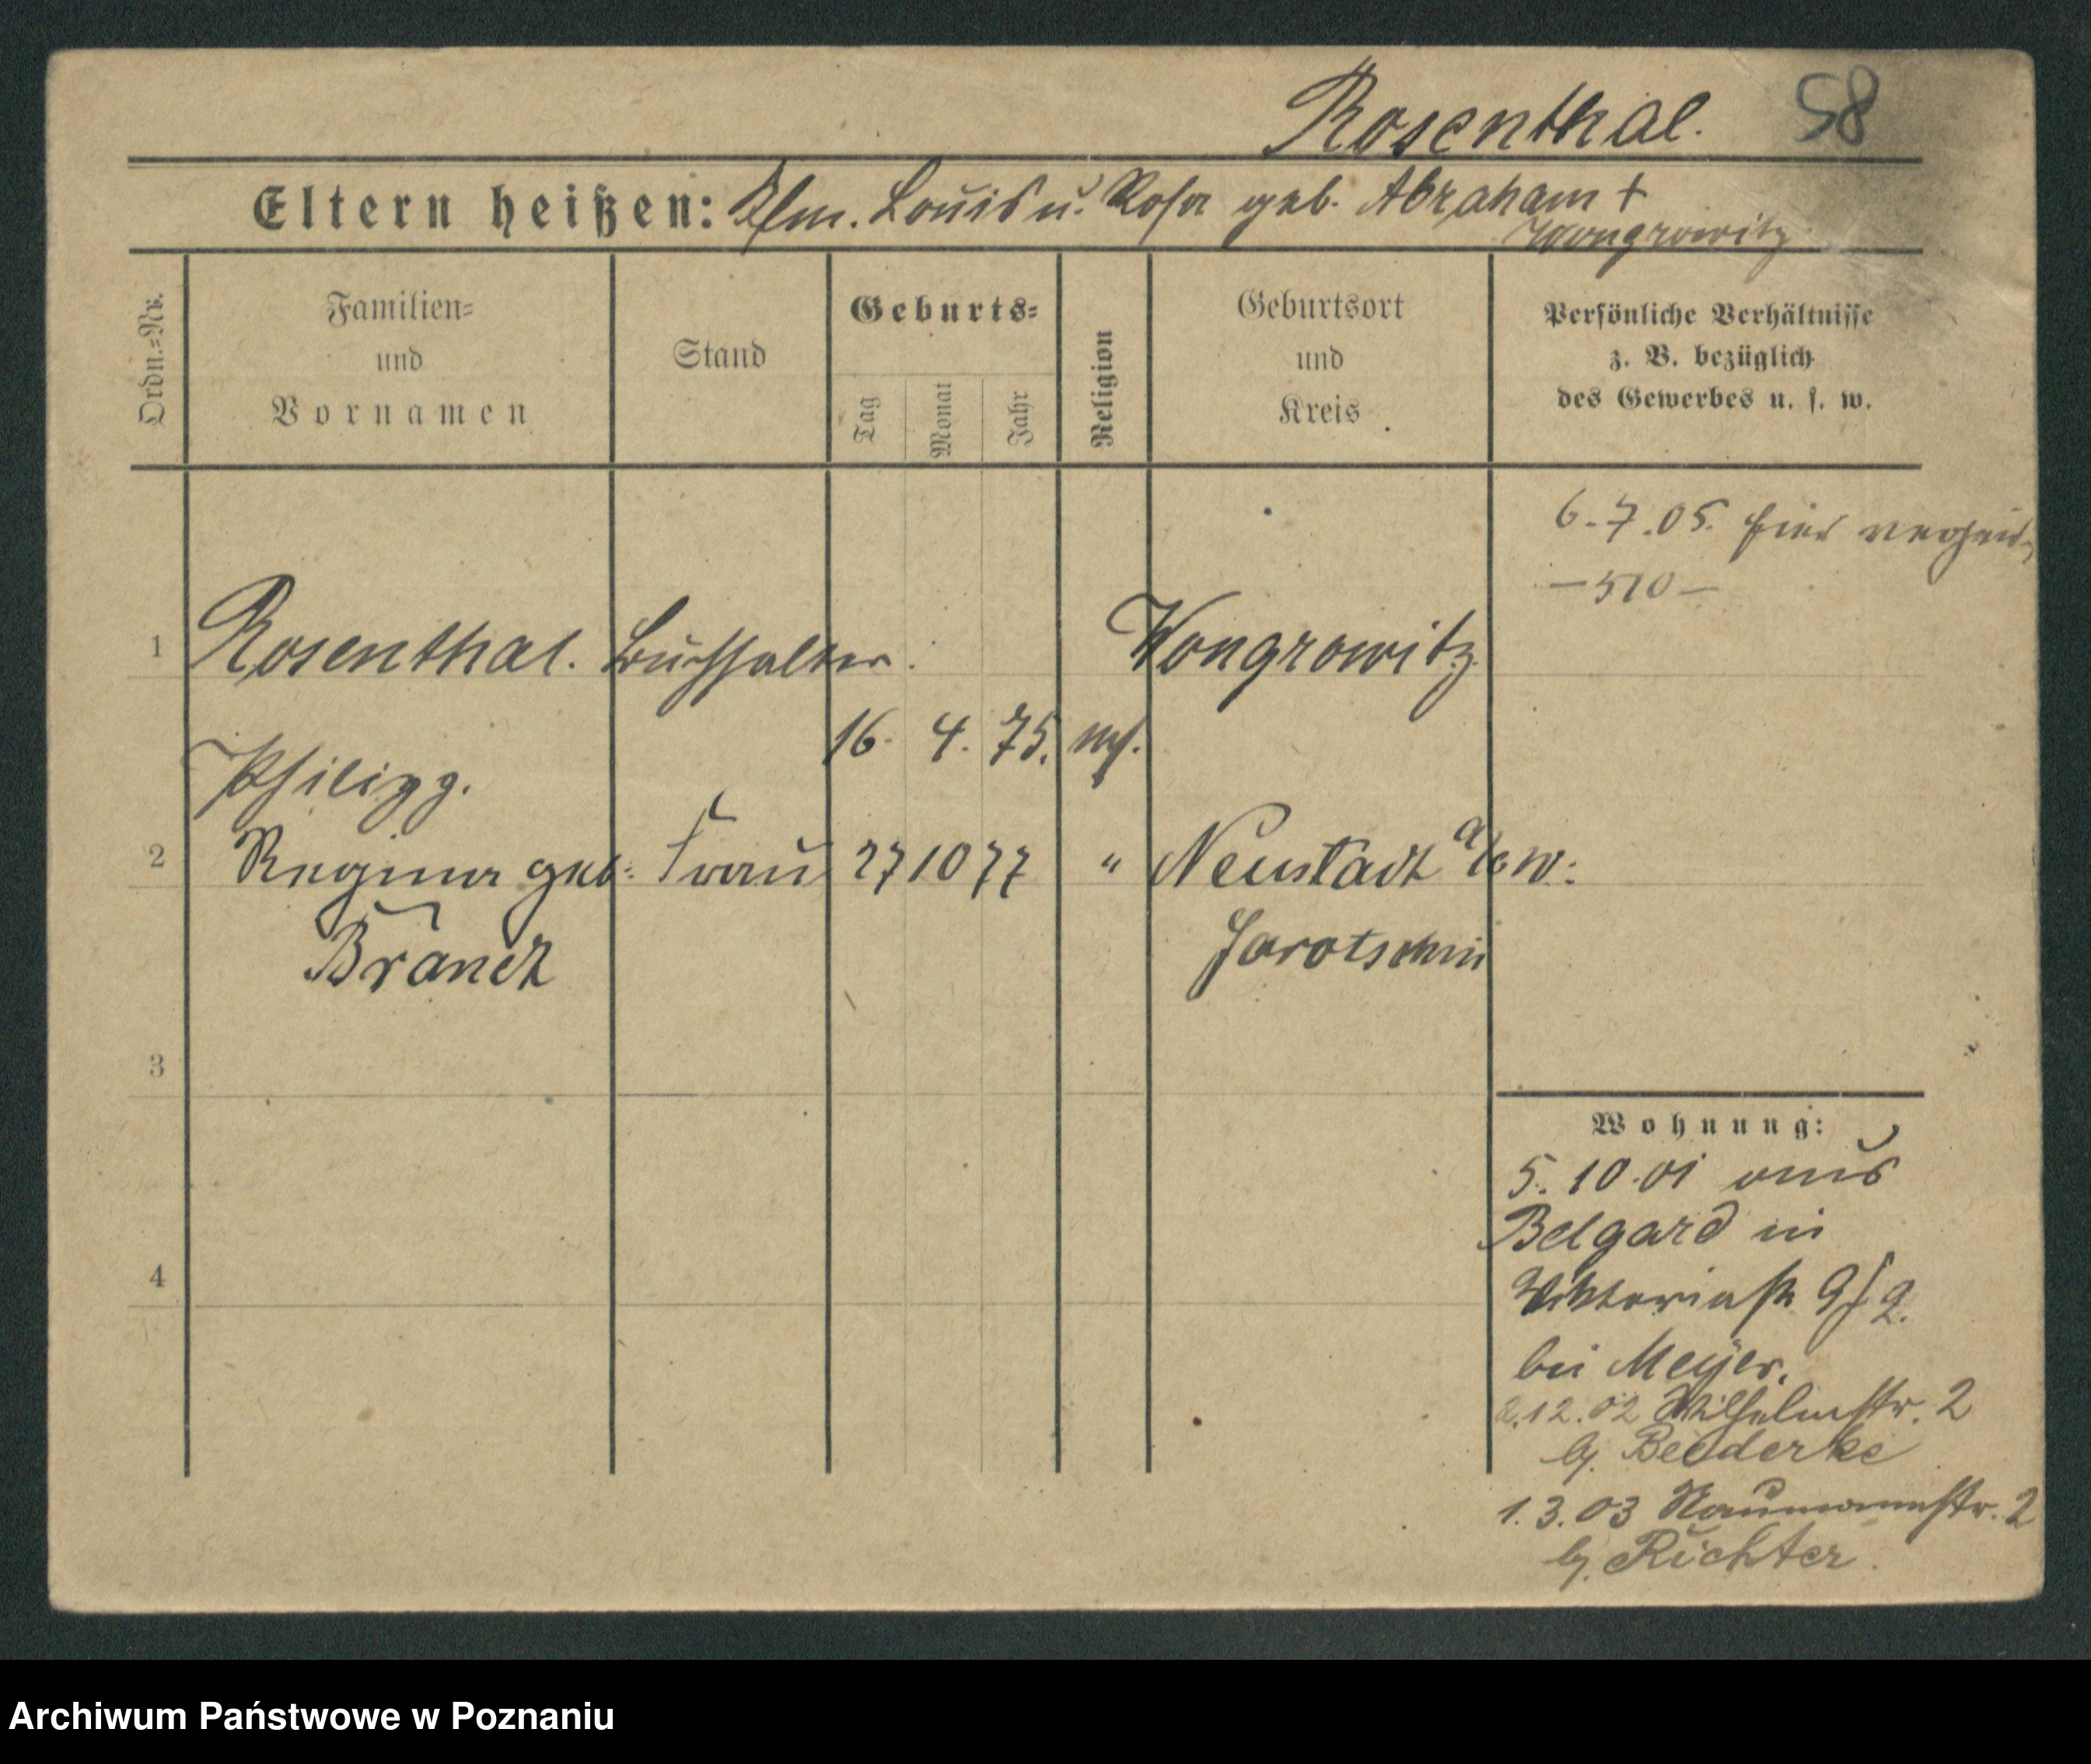 Rosenthal. 58
Eltern heißen: Kfm. Louis u. Rosa geb. Abraham †
Wongrowitz
Ordn.=Nr.
Familien=
und
Vornamen
Stand
Geburts=
Tag
Monat
Jahr
Religion
Geburtsort
und
Kreis
Persönliche Verhältnisse
z. B. bezüglich
des Gewerbes u. s. w.
6.7.05. hier
— 510 —
1 Rosenthal. Buchhalter. Wongrowitz
Philipp. 16. 4. 75. mos.
2 Regina geb. Frau 27 10 77 " Neustadt a/W:
Brandt Jarotschin
3
4
Wohnung:
5.10.01 aus
Belgard in
Viktoriastr. 9
bei Meyer.
2.12.02 Wilhelmstr. 2
b.
1.3.03 Naumannstr. 2
b. Richter.
Archiwum Państwowe w Poznaniu